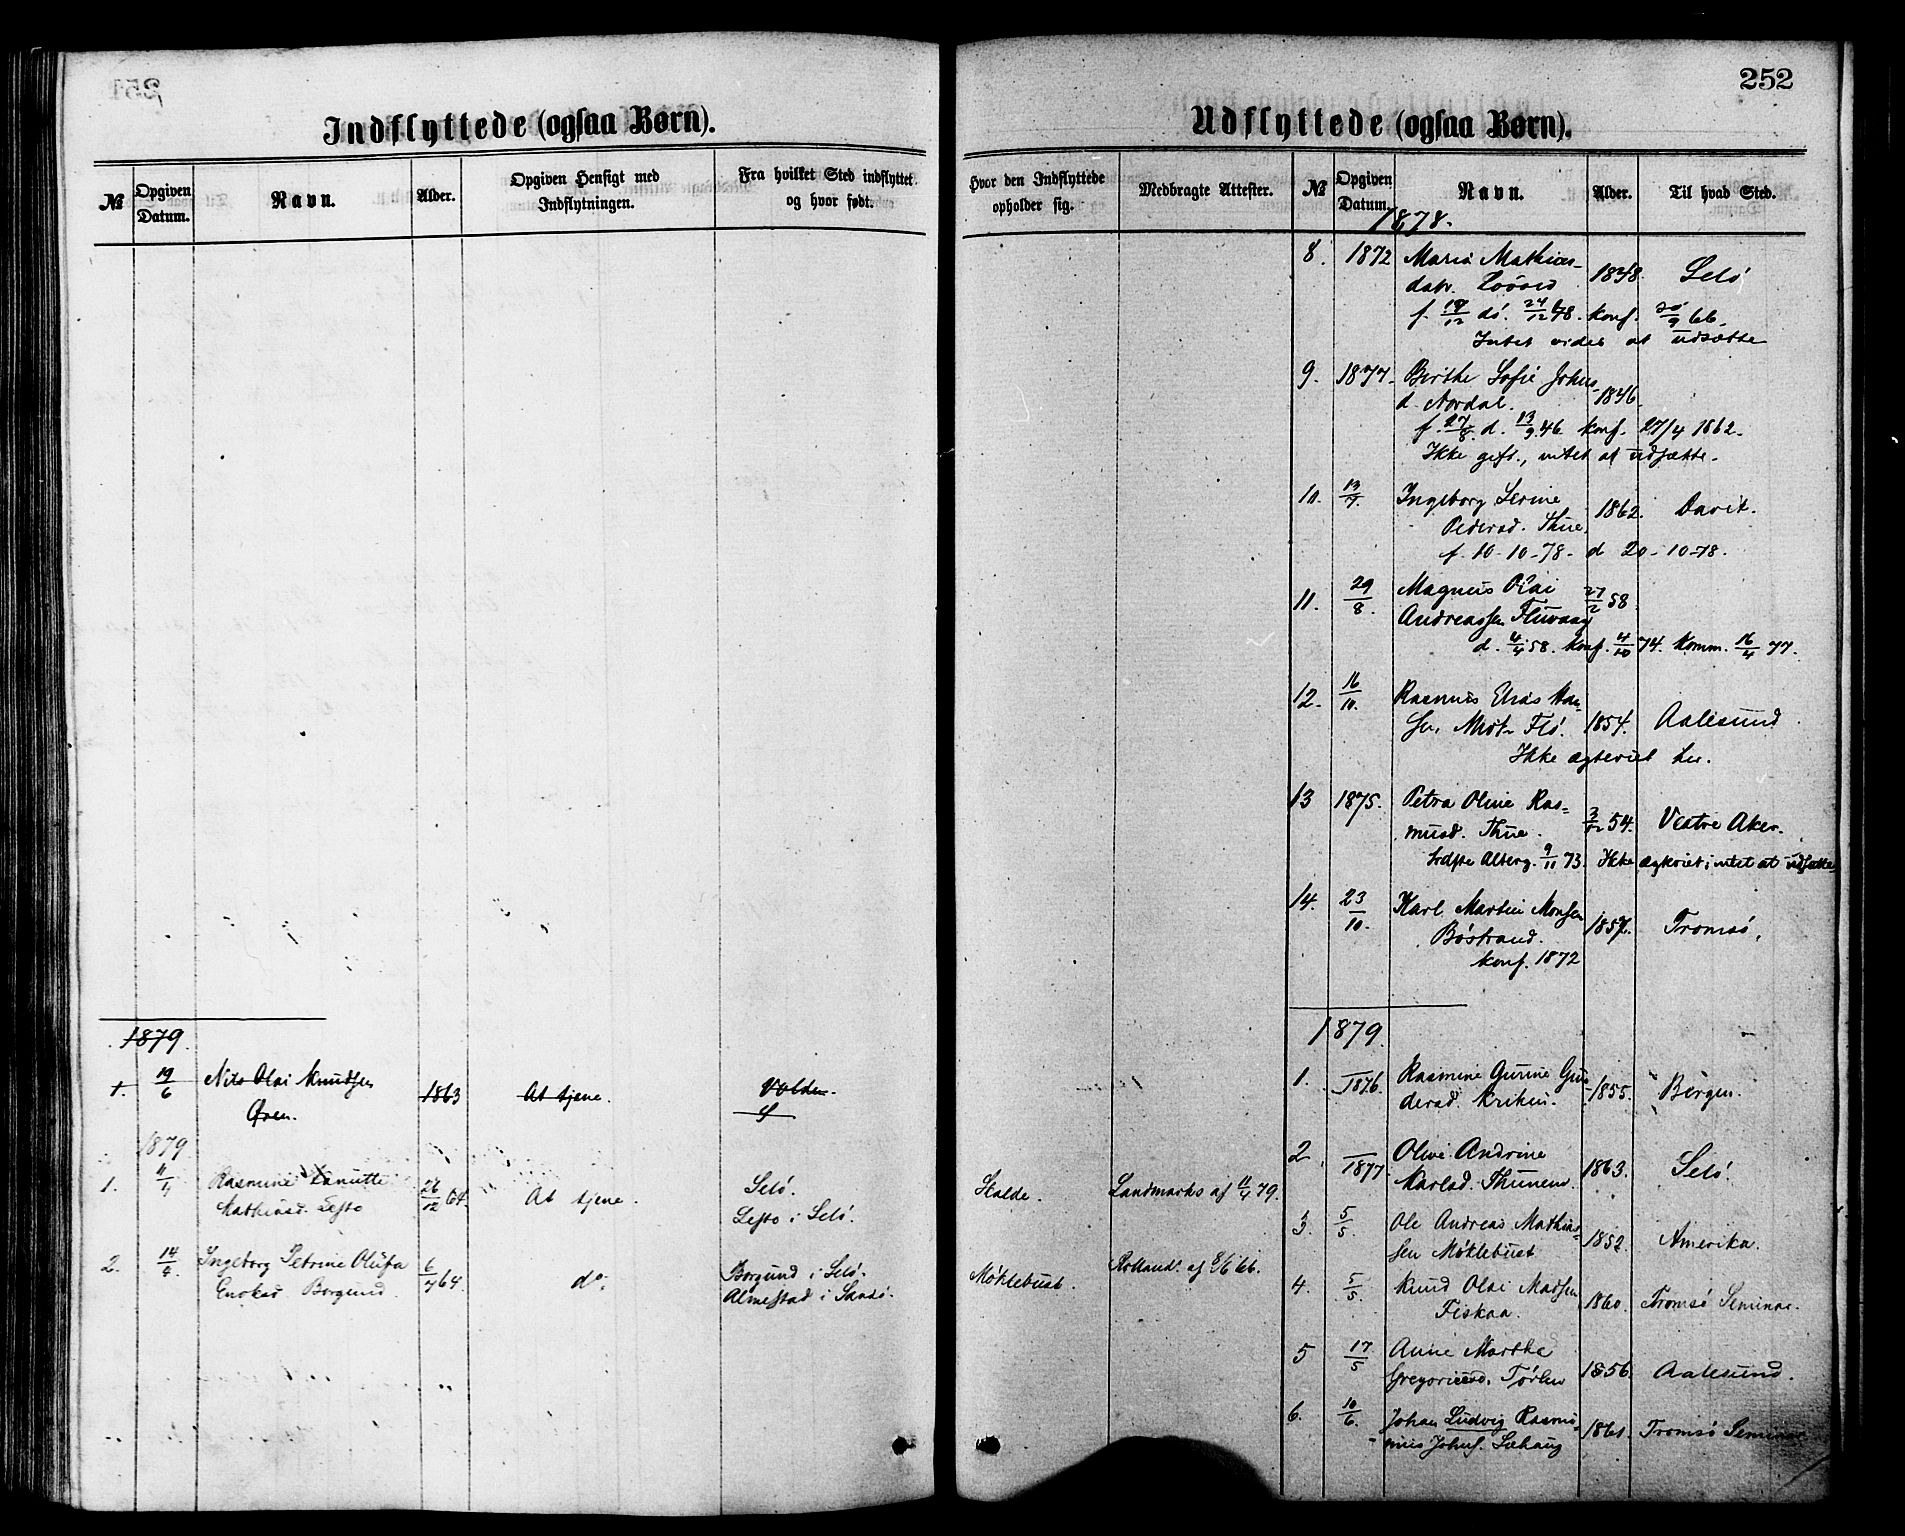 252
Indflyttede (ogsaa Børn).
№ Opgiven Datum. Navn. Alder. Opgiven Hensigt med Indflytningen. Fra hvilket Sted indflyttet og hvor født.
1879
1. 19/6 Nils Olai Knudsen 1863 At tjene. Volden
Øren.
1879
1. 11/4 Rasmine 26/12 64. At tjene. Selö.
Mathiasd. Lefto Lefto i Selö.
2. 14/4 Ingeborg Petrine Olufa 6/7 64. do. Borgund i Selö.
Enoksd Borgund. Almestad i Sandö.
Udflyttede (ogsaa Børn).
Hvor den Indflyttede opholder sig. Medbragte Attester. № Opgiven Datum. Navn. Alder. Til hvad Sted.
Halde. Landmarks af 11/4 79.
Möklebust. Rolland
1878.
8. 1872 Maria Mathias- 1848. Selö
datr.
f. dö. 24/12 48. konf. 30/9 66.
Intet vides at udsætte
9. 1877. Berthe Sofie Johns- 1846.
d. Nordal.
f. 27/8. d. 13/9. 46 konf. 27/4 1862.
Ikke gift., intet at udsætte.
10. 13/7 Ingeborg Serine 1862. Davik.
Pedersd. Thue.
f. 10-10-78- d 20-10-78.
11. 29/8. Magnus Olai 27/2 58.
Andreassen Fluvaag
d. 4/4 58. konf. 4/10 74. komm. 16/4 77.
12. 16/10. Rasmus Elias Han- 1854. Aalesund.
sen,
Ikke ægteviet her.
13 1875. Petra Oline Ras- 3/12 54. Vestre Aker.
musd. Thue.
Sidste Alterg. 9/11 73. Ikke ægteviet; intet at udsætte
14. 23/10. Karl Martin Monsen 1857. Tromsö.
Böstrand.
konf. 1872
1879.
1. 1876. Rasmine Gurine Gun- 1855. Bergen.
dersd. Kriken.
2. 1877. Oline Andrine 1863. Selö.
Karlsd. Thunem.
3. 5/5. Ole Andreas Mathias- 1852. Amerika.
sen Möklebust
4. 5/5. Knud Olai Madsen 1860. Tromsö Seminar.
Fiskaa
5 17/5 Anne Marthe 1856. Aalesund.
Gregoriusd.
6. 10/6. Johan Ludvig Rasmu- 1861. Tromsö Seminar
nus Johns. Sæhaug